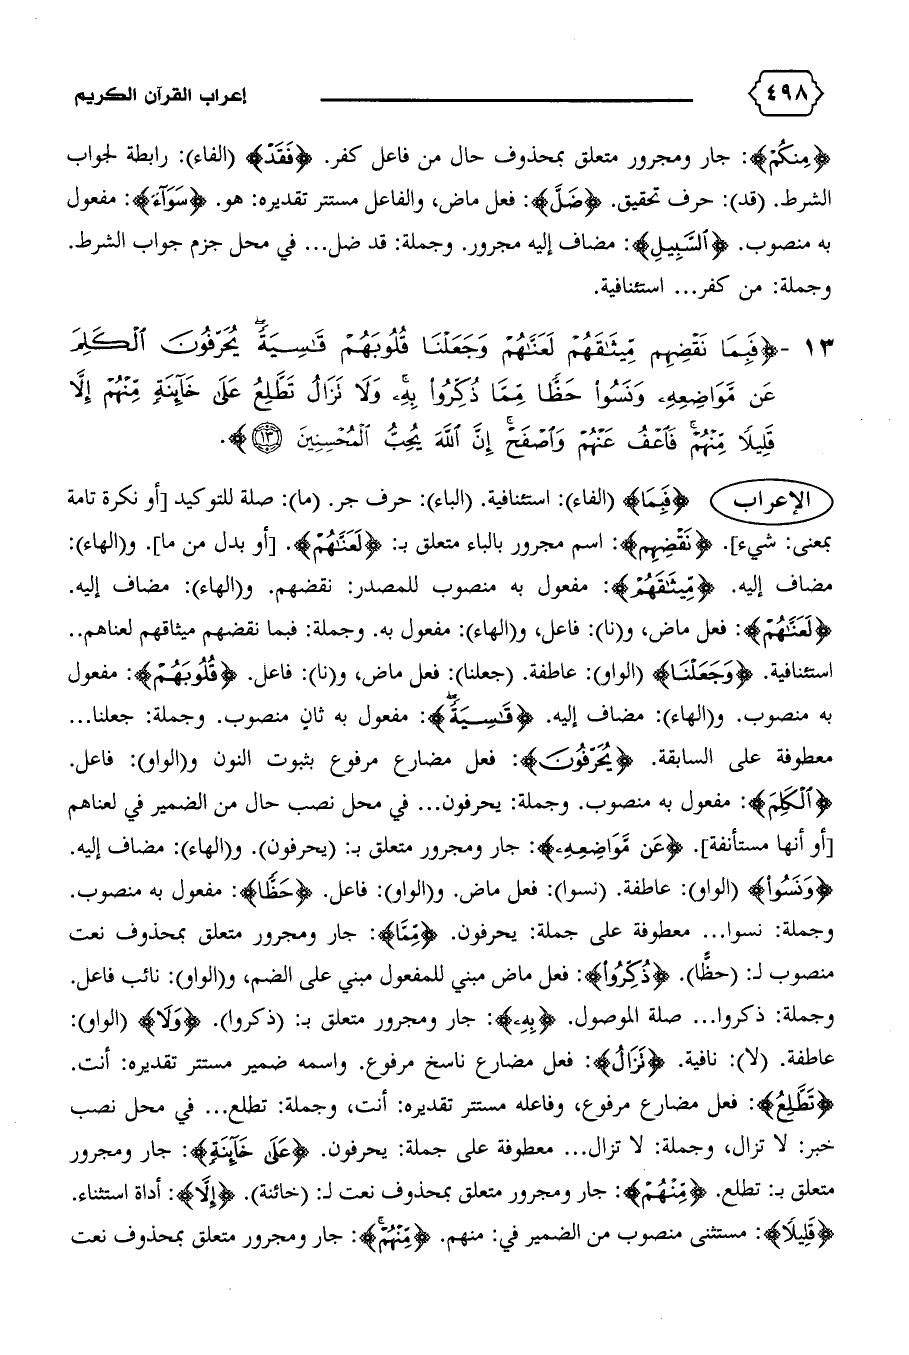 ٤٩٨ إعراب القرآن الكريم
﴿مِنكُمْ﴾: جار ومجرور متعلق بمحذوف حال من فاعل كفر. ﴿فَقَدْ﴾ (الفاء): رابطة لجواب
الشرط. (قد): حرف تحقيق. ﴿ضَلَّ﴾: فعل ماض، والفاعل مستتر تقديره: هو. ﴿سَوَآءَ﴾: مفعول
به منصوب. ﴿ٱلسَّبِيلِ﴾: مضاف إليه مجرور. وجملة: قد ضل... في محل جزم جواب الشرط.
وجملة: من كفر... استئنافية.
١٣ -﴿فَبِمَا نَقْضِهِم مِّيثَٰقَهُمْ لَعَنَّٰهُمْ وَجَعَلْنَا قُلُوبَهُمْ قَٰسِيَةً ۖ يُحَرِّفُونَ ٱلْكَلِمَ
عَن مَّوَاضِعِهِۦ وَنَسُوا۟ حَظًّا مِّمَّا ذُكِّرُوا۟ بِهِۦ ۚ وَلَا تَزَالُ تَطَّلِعُ عَلَىٰ خَآئِنَةٍ مِّنْهُمْ إِلَّا
قَلِيلًا مِّنْهُمْ ۖ فَٱعْفُ عَنْهُمْ وَٱصْفَحْ ۚ إِنَّ ٱللَّهَ يُحِبُّ ٱلْمُحْسِنِينَ ١٣﴾.
الإعراب ﴿فَبِمَا﴾ (الفاء): استئنافية. (الباء): حرف جر. (ما): صلة للتوكيد [أو نكرة تامة
بمعنى: شيء]. ﴿نَقْضِهِم﴾: اسم مجرور بالباء متعلق بـ: ﴿لَعَنَّٰهُمْ﴾. [أو بدل من ما]. و(الهاء):
مضاف إليه. ﴿مِّيثَٰقَهُمْ﴾: مفعول به منصوب للمصدر: نقضهم. و(الهاء): مضاف إليه.
﴿لَعَنَّٰهُمْ﴾: فعل ماض، و(نا): فاعل، و(الهاء): مفعول به. وجملة: فبما نقضهم ميثاقهم لعناهم..
استئنافية. ﴿وَجَعَلْنَا﴾ (الواو): عاطفة. (جعلنا): فعل ماض، و(نا): فاعل. ﴿قُلُوبَهُمْ﴾: مفعول
به منصوب. و(الهاء): مضاف إليه. ﴿قَٰسِيَةً ۖ﴾: مفعول به ثانٍ منصوب. وجملة: جعلنا...
معطوفة على السابقة. ﴿يُحَرِّفُونَ﴾: فعل مضارع مرفوع بثبوت النون و(الواو): فاعل.
﴿ٱلْكَلِمَ﴾: مفعول به منصوب. وجملة: يحرفون... في محل نصب حال من الضمير في لعناهم
[أو أنها مستأنفة]. ﴿عَن مَّوَاضِعِهِۦ﴾: جار ومجرور متعلق بـ: (يحرفون). و(الهاء): مضاف إليه.
﴿وَنَسُوا۟﴾ (الواو): عاطفة. (نسوا): فعل ماض. و(الواو): فاعل. ﴿حَظًّا﴾: مفعول به منصوب.
وجملة: نسوا... معطوفة على جملة: يحرفون. ﴿مِّمَّا﴾: جار ومجرور متعلق بمحذوف نعت
منصوب لـ: (حظًّا). ﴿ذُكِّرُوا۟﴾: فعل ماض مبني للمفعول مبني على الضم، و(الواو): نائب فاعل.
وجملة: ذكروا... صلة الموصول. ﴿بِهِۦ﴾: جار ومجرور متعلق بـ: (ذكروا). ﴿وَلَا﴾ (الواو):
عاطفة. (لا): نافية. ﴿تَزَالُ﴾: فعل مضارع ناسخ مرفوع. واسمه ضمير مستتر تقديره: أنت.
﴿تَطَّلِعُ﴾: فعل مضارع مرفوع، وفاعله مستتر تقديره: أنت، وجملة: تطلع... في محل نصب
خبر: لا تزال، وجملة: لا تزال... معطوفة على جملة: يحرفون. ﴿عَلَىٰ خَآئِنَةٍ﴾: جار ومجرور
متعلق بـ: تطلع. ﴿مِّنْهُمْ﴾: جار ومجرور متعلق بمحذوف نعت لـ: (خائنة). ﴿إِلَّا﴾: أداة استثناء.
﴿قَلِيلًا﴾: مستثنى منصوب من الضمير في: منهم. ﴿مِّنْهُمْ ۚ﴾: جار ومجرور متعلق بمحذوف نعت